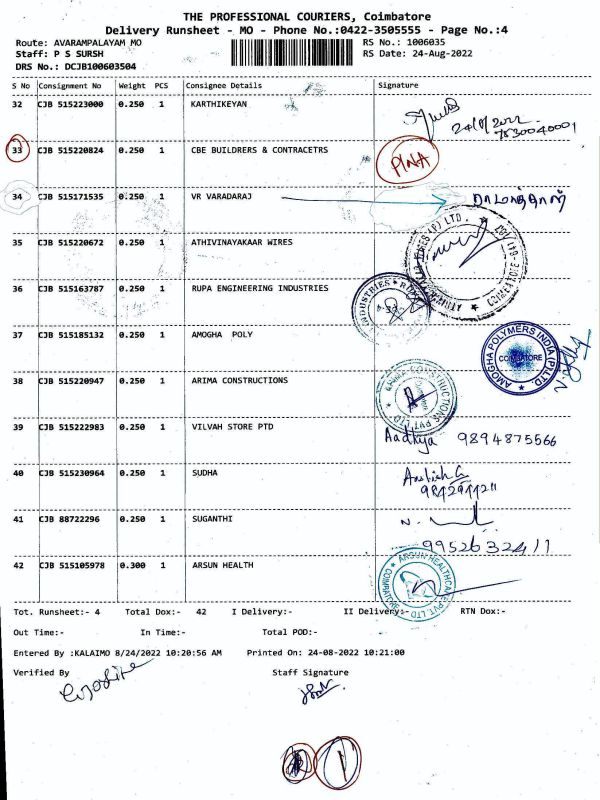 THE PROFESSIONAL COURIERS, Coimbatore
Delivery Runsheet - MO - Phone No.:0422-3505555 - Page No.:4
Route: AVARAMPALAYAM MO RS No.: 1006035
Staff: P S SURSH RS Date: 24-Aug-2022
DRS No.: DCJB100603504
S No Consignment No Weight PCS Consignee Details Signature
32 CJB 515223000 0.250 1 KARTHIKEYAN
24/8/2022
7530040001
33 CJB 515220824 0.250 1 CBE BUILDRERS & CONTRACETRS P/NA
34 CJB 515171535 0.250 1 VR VARADARAJ
35 CJB 515220672 0.250 1 ATHIVINAYAKAAR WIRES
36 CJB 515163787 0.250 1 RUPA ENGINEERING INDUSTRIES
37 CJB 515185132 0.250 1 AMOGHA POLY AMOGHA POLYMERS INDIA (P) LTD. COIMBATORE
38 CJB 515220947 0.250 1 ARIMA CONSTRUCTIONS ARIMA CONSTRUCTIONS PVT. LTD
39 CJB 515222983 0.250 1 VILVAH STORE PTD Aadhya 9894875566
40 CJB 515230964 0.250 1 SUDHA
41 CJB 88722296 0.250 1 SUGANTHI N.
9952632411
42 CJB 515105978 0.300 1 ARSUN HEALTH ARSUN HEALTHCARE PVT. LTD
Tot. Runsheet:- 4 Total Dox:- 42 I Delivery:- II Delivery:- RTN Dox:-
Out Time:- In Time:- Total POD:-
Entered By :KALAIMO 8/24/2022 10:20:56 AM Printed On: 24-08-2022 10:21:00
Verified By Staff Signature